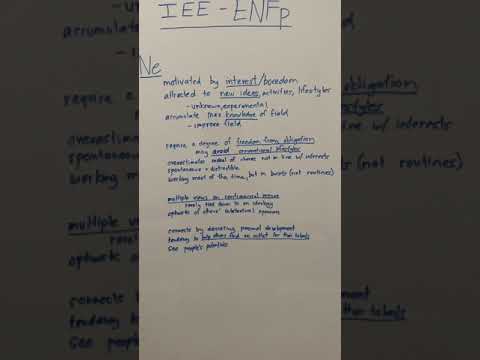 IEE - ENFp
Ne
motivated by interest/boredom
attracted to new ideas, activities, lifestyles
- unknown, experimental
accumulate max knowledge of field
- improve field
require a degree of freedom from obligation
may avoid conventional lifestyles
overestimates amount of chores not in line w/ interests
spontaneous + distractible
working most of the time, but in bursts (not routines)
multiple views on controversial
rarely ties down to an ideology
of others' opinions
connects by discussing personal development
tendency to help others find an outlet for their talents
see people's potentials